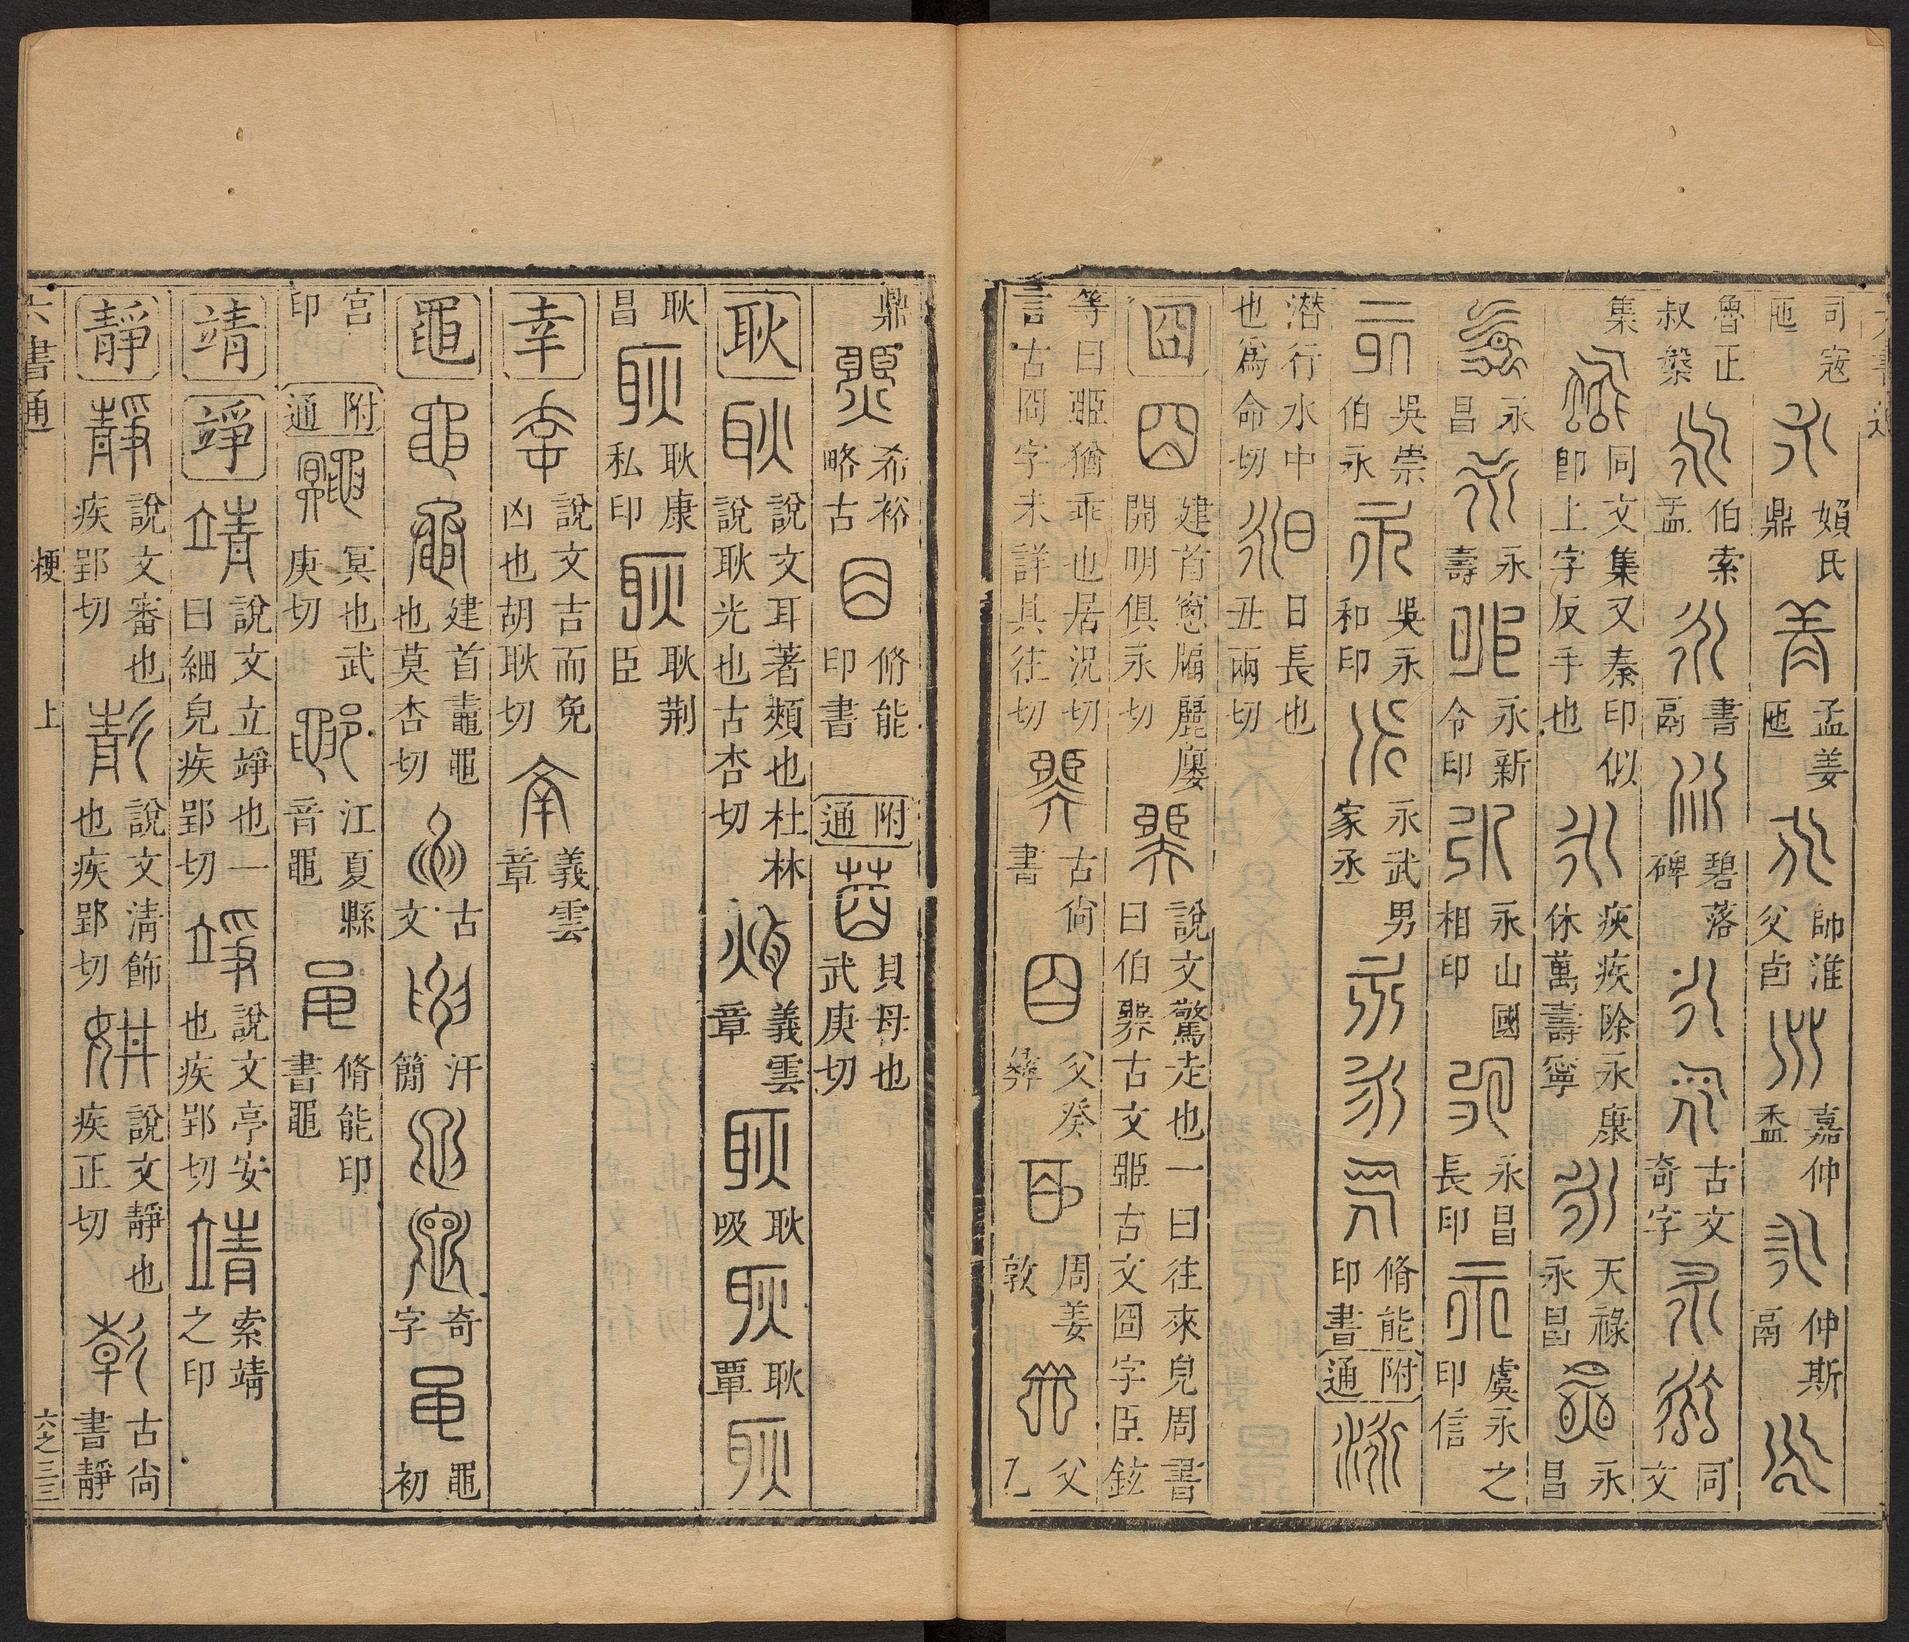 司寇匜 嬇氏鼎 孟姜匜 師淮父卣 嘉仲盉 仲斯鬲
魯正叔槃 伯索盂 書鬲 碧落碑 古文奇字 同文
集 同文集又秦印似卽上字反手也 疢疾除永康休萬壽寧 天祿永昌 永昌
永昌 永壽 永新令印 永山國相印 永昌長印 虞永之印信
吳崇伯永 吳永和印 永武男家丞 脩能印書 附通
潛行水中也爲命切 日長也丑兩切
囧 建首窻牖麗廔開明俱永切 說文驚走也一曰往來皃周書曰伯臩古文臦古文囧字臣鉉
等曰臦猶乖也居況切言古囧字未詳具往切 古尙書 父癸彝 周姜敦 父乙
鼎 希裕略古 脩能印書 附通 貝母也武庚切
耿 說文耳著頰也杜林說耿光也古杏切 義雲章 耿吸 耿覃
耿昌 耿康私印 耿荆臣
幸 說文吉而免凶也胡耿切 義雲章
黽 建首鼃黽也莫杏切 古文 汗簡 奇字 黽初
宮印 附通 冥也武庚切 江夏縣音黽 脩能印書黽
靖 竫 說文立竫也一曰細皃疾郢切 說文亭安也疾郢切 索靖之印
靜 說文審也疾郢切 說文清飾也疾郢切 說文靜也疾正切 古尙書靜
六書通 梗 上 六之三三